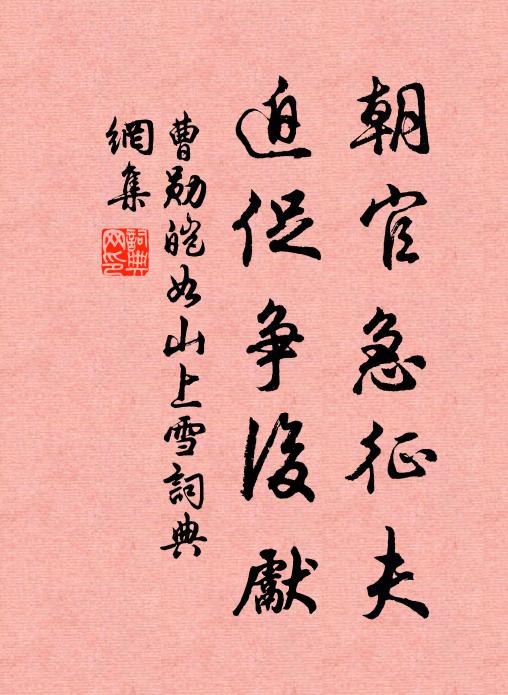 朝官急征夫
迫促争後獻
曹勋皑如山上雪詞典
網集
詞典
网印